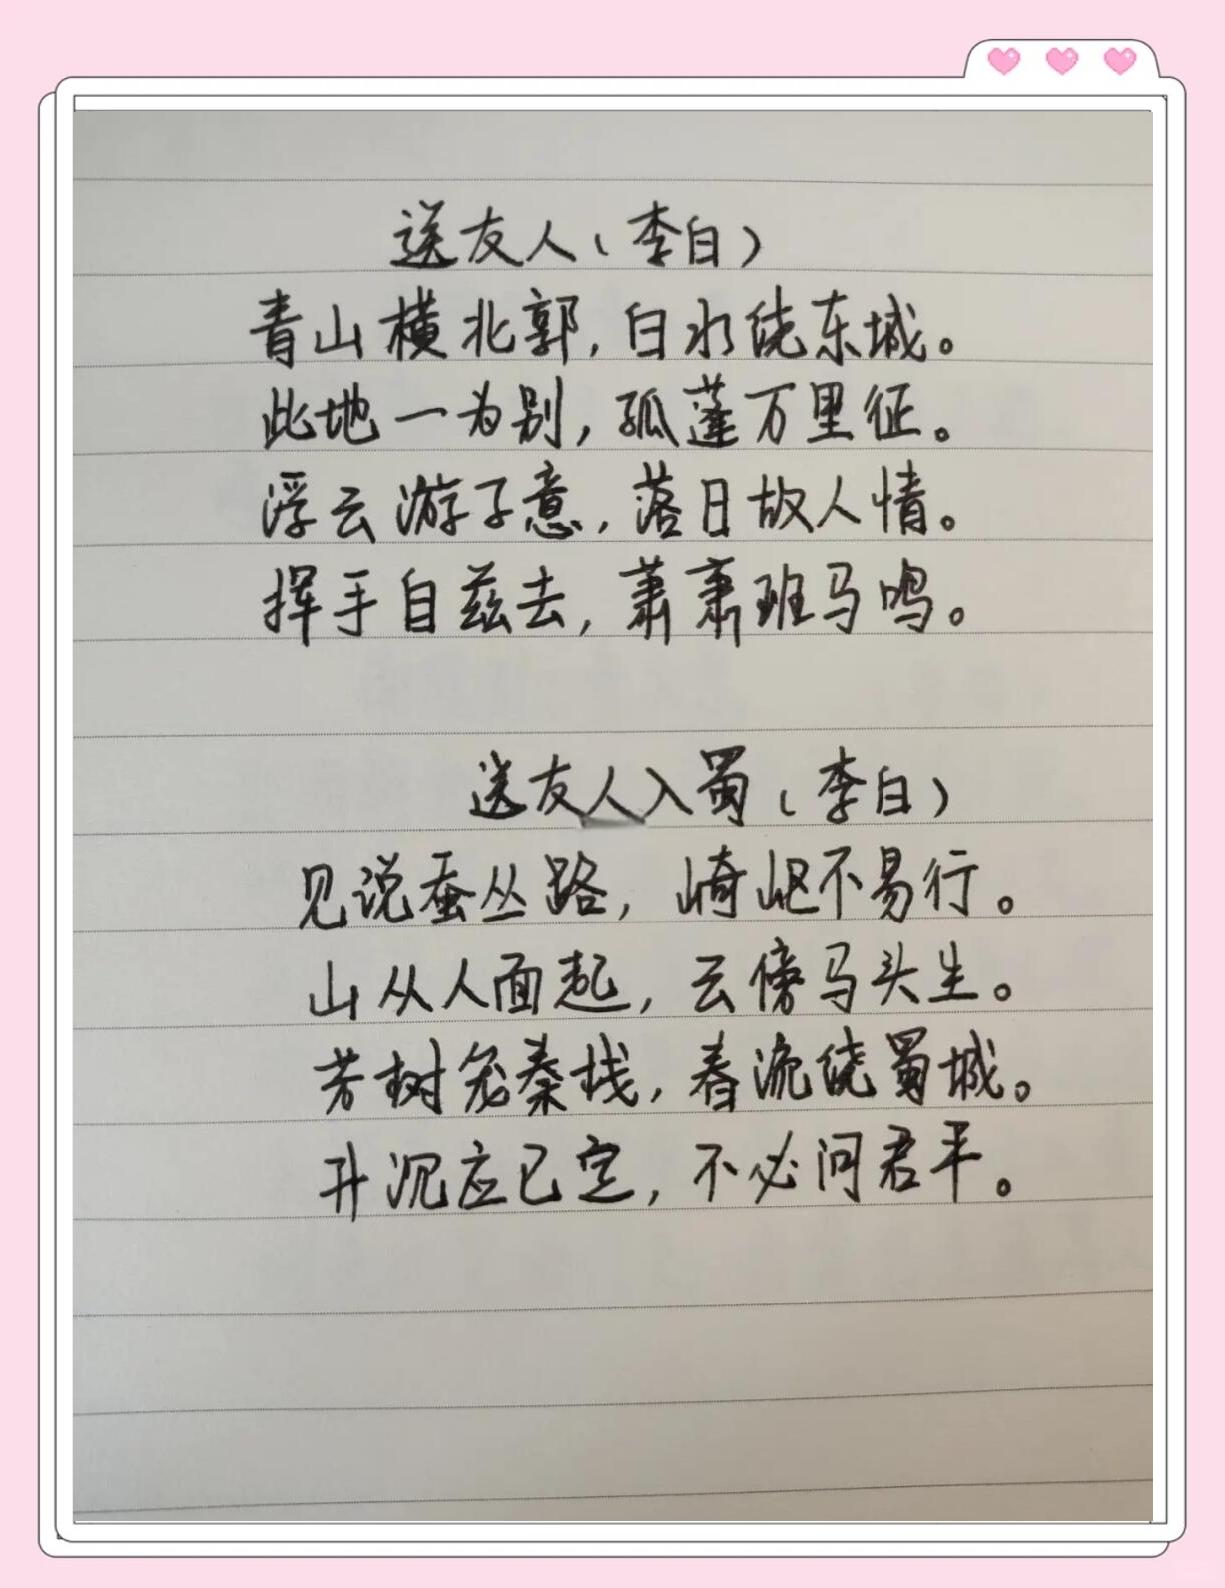 送友人（李白）
青山横北郭，白水绕东城。
此地一为别，孤蓬万里征。
浮云游子意，落日故人情。
挥手自兹去，萧萧班马鸣。
送友人入蜀（李白）
见说蚕丛路，崎岖不易行。
山从人面起，云傍马头生。
芳树笼秦栈，春流绕蜀城。
升沉应已定，不必问君平。